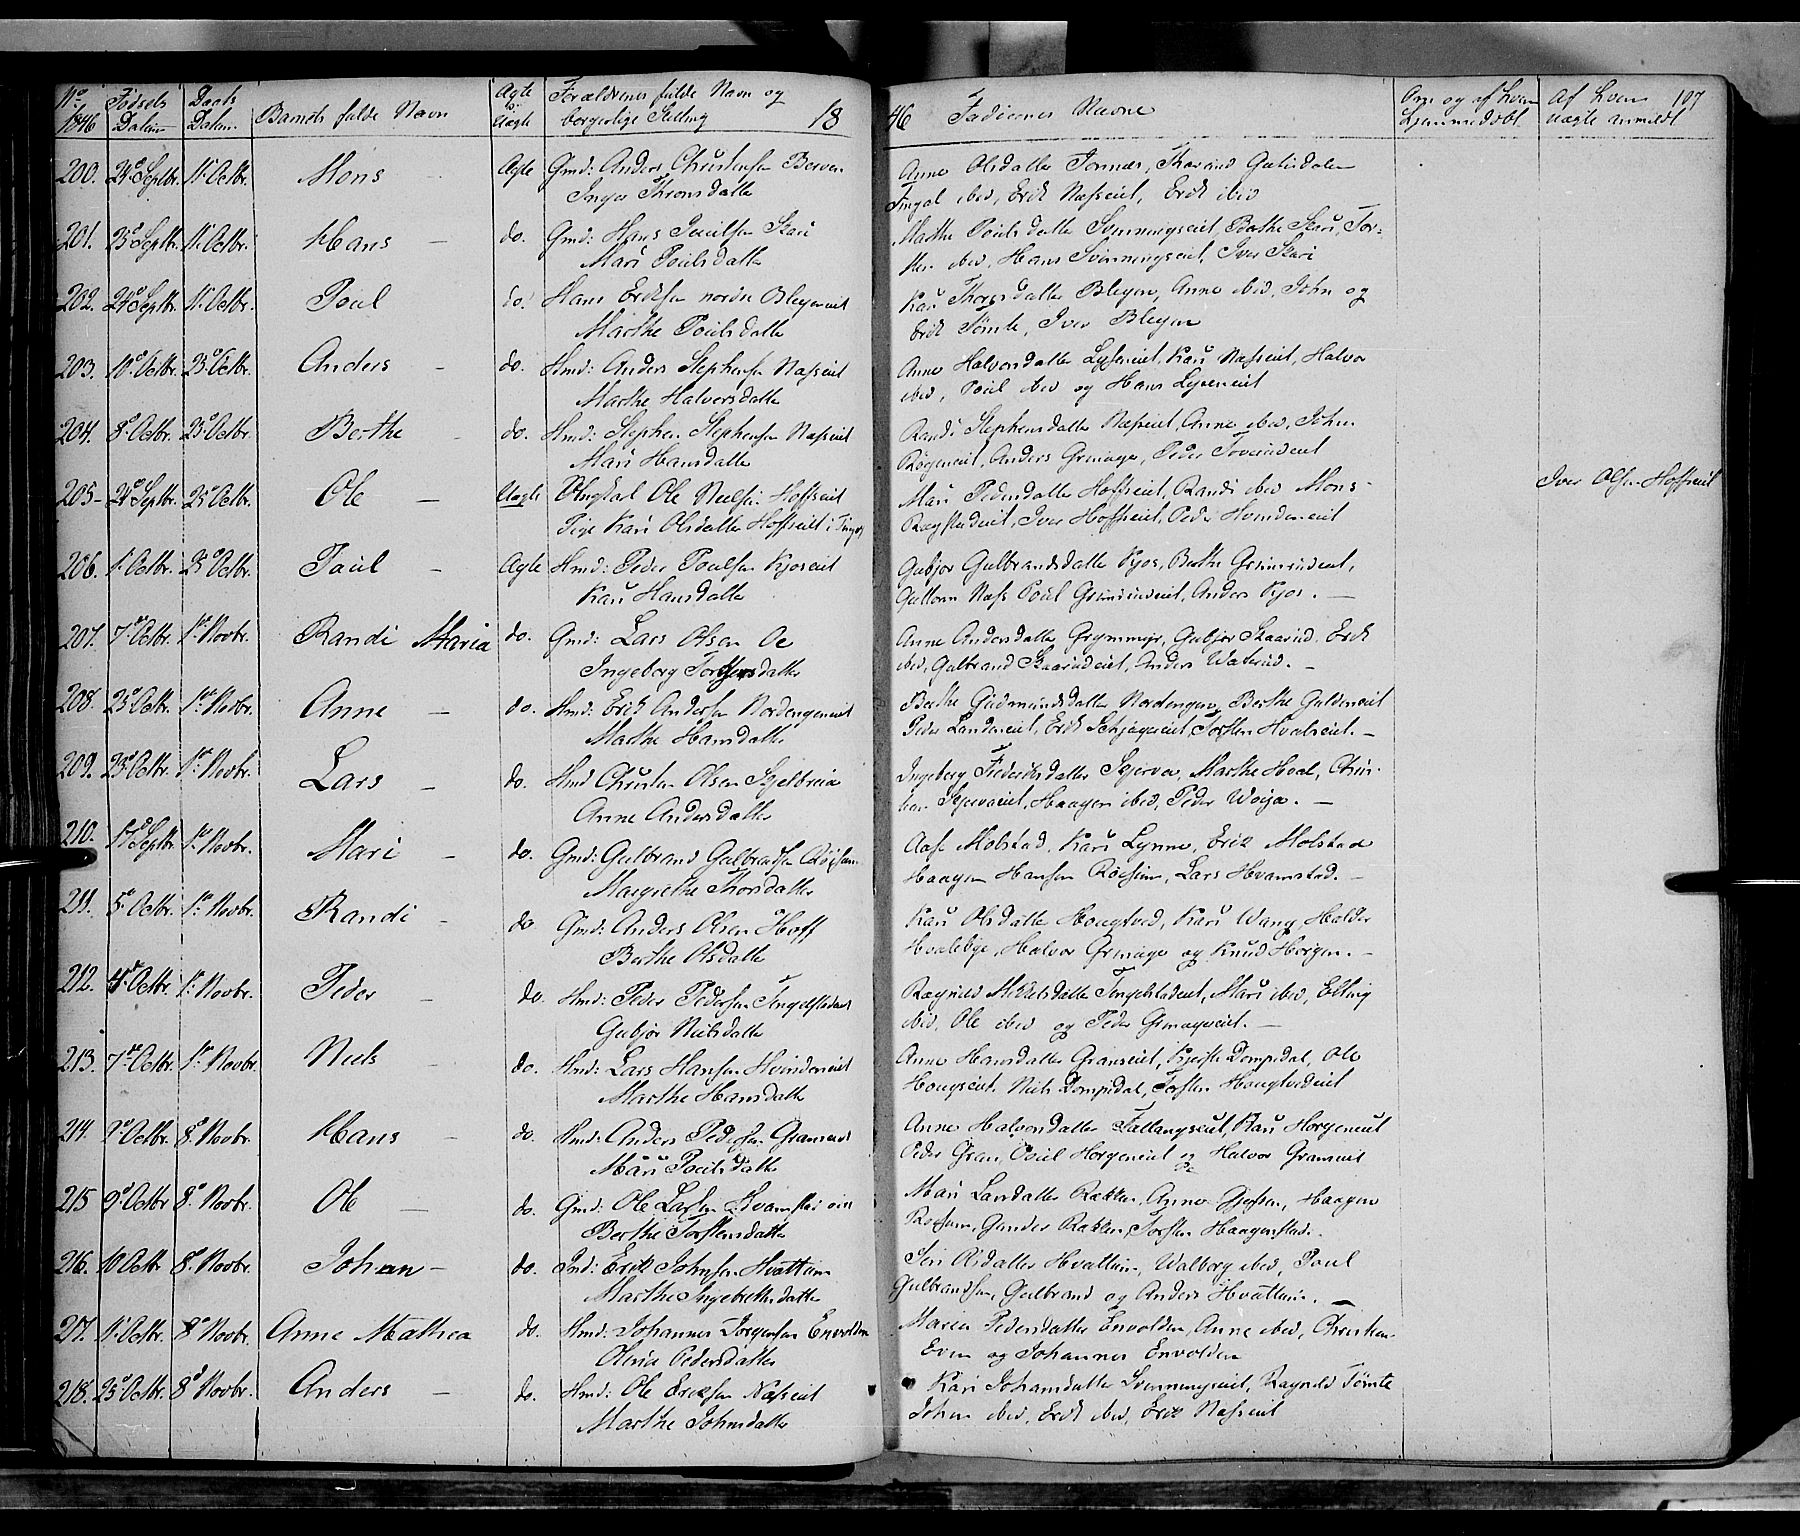 No 1846 Fødsels Datum Daabs Datum Barnets fulde Navn Ægte v: Uægte Forældrenes fulde Navn og borgerlige Stilling 18
46 Faddernes Navne Om og af hvem hjemmedøbt Af hvem uægte anmeldt 107
200. 24 Septbr. 11 Octbr. Mons Ægte Gmd: Anders Christensen
Inger Thronsdatter
Anne Olsdatter
Fingal ibid, Erik Næsseiet, Erik ibid
201. 25 Septbr. 11 Octbr. Hans do. Gmd: Hans Poulsen Skari
Mari Poulsdatter
Marthe Poulsdatter Svenningseiet, Berthe Skari, Tor-
sten ibid, Hans Svenningseiet, Iver Skari
202. 24 Septbr. 11 Octbr. Poul do. Hans Eriksen nordre Bleyeneiet
Marthe Poulsdatter
Kari Thorsdatter Bleyen, Anne ibid, John og
Erik Tømte, Iver Bleyen
203. 10 Octbr. 25 Octbr. Anders do. Hmd: Anders Stephensen Næsseiet
Marthe Halvorsdatter
Anne Halvorsdatter Lyseneiet, Kari Næsseiet, Halvor
ibid, Poul ibid og Hans Lyseneiet
204. 8 Octbr. 25 Octbr. Berthe do. Hmd: Stephen Stephensen Næsseiet
Mari Hansdatter
Randi Stephensdatter Næsseiet, Anne ibid, John
Anders Grinager, Peder
205 24 Septbr. 25 Octbr. Ole Uægte Ungkarl Ole Nielsen Hoffseiet
Pige Kari Olsdatter Hoffseiet i
Mari Pedersdatter Hoffseiet, Randi ibid Mons
Iver Hoffseiet, Peder Hvindeneiet
Iver Olsen Hoffseiet
206. 1 Octbr. 25 Octbr. Paul Ægte Hmd: Peder Poulsen Kjoseiet
Kari Hansdatter
Gubjør Gulbrandsdatter Kjos, Berthe Grimsrudeiet,
Guttorm Næss Poul Grimsrudeiet, Anders Kjos. —
207. 7 Octbr. 1 Novbr. Randi Maria do. Gmd: Lars Olsen
Ingeborg Torstensdatter
Anne Andersdatter Grymmyr, Gubjør Skaarud, Erik
ibid, Gulbrand Skaarudeiet, Anders
208. 25 Octbr. 1 Novbr. Anne do. Hmd: Erik Andersen Nordengeneiet
Marthe Hansdatter
Berthe Gudmundsdatter Nordengen, Berthe
Peder Landeneiet, Erik Torsten Hvalseiet. —
209. 23 Octbr. 1 Novbr. Lars do. Hmd Christen Olsen Skjelbreia
Anne Andersdatter
Ingeborg Frederiksdatter Skjerven, Marthe Hval, Chris-
ten Skjerveneiet, Haagen ibid, Peder Woija. —
210. 17 Septbr 1 Novbr. Mari do. Gmd: Gulbrand Gulbrandsen
Margrethe Thorsdatter
Aase Molstad, Kari Lynne, Erik Molstad
Haagen Hansen Røisum, Lars Hvamstad. —
211. 5 Octbr. 1 Novbr. Randi do Gmd: Anders Olsen Hoff
Berthe Olsdatter
Kari Olsdatter Hougtved, Kari Wang, Halder
Hvaleby, Halvor Grinager og Knud Horgen. —
212. 4 Octbr. 1 Novbr. Peder do. Hmd: Peder Pedersen
Gubjør Nielsdatter
Ragnild Mikkelsdatter Ingelstadeiet, Mari ibid, Elling
ibid, Ole ibid og Peder Grinagereiet. —
213. 7 Octbr. 1 Novbr. Niels do. Hmd: Lars Hansen Hvindeneiet
Marthe Hansdatter
Anne Hansdatter Granseiet, Dompidal, Ole
Hougseiet, Niels Dompidal, Torsten Hougtvedeiet
214. 2 Octbr. 8 Novbr. Hans do. Hmd: Anders Pedersen Granseiet
Mari Poulsdatter
Anne Halvorsdatter Fallangseiet, Kari Horgeneiet
Peder Gran, Poul Horgeneiet og Halvor Granseiet
215 9 Octbr 8 Novbr. Ole do. Gmd: Ole Larsen Hvamstad
Berthe Torstensdatter
Mari Larsdatter Rækken, Anne Haagen
Røisum, Gunder Rækken, Torsten Haagenstad.
216. 10 Octbr 8 Novbr. Johan do. Ind: Erik Johnsen Hvattum
Marthe Ingebrethsdatter
Siri Olsdatter Hvattum, Walborg ibid, Poul
Gulbrandsen, Gulbrand og Anders Hvattum. —
217. 11 Octbr. 8 Novbr. Anne Mathea do. Hmd: Johannes Jørgensen Envolden
Olerie Pedersdatter
Maren Pedersdatter Envolden, Anne ibid, Christian
Even og Johannes Envolden
218. 25 Octbr. 8 Novbr. Anders do. Hmd: Ole Eriksen Næsseiet
Marthe Johnsdatter
Kari Johansdatter Svenningseiet, Ragnild Tømte
Johan ibid, Erik ibid, Erik Næsseiet